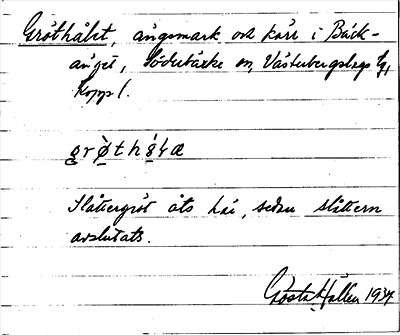 Gröthålet, ängsmark och kärr i Bäck-
änget, Söderbärke sn, Västerbergslags tg,
Kopp l.
grøthålæ
Slåttergröt åts här, sedan slåttern
avslutats.
Gösta Hallen 1934